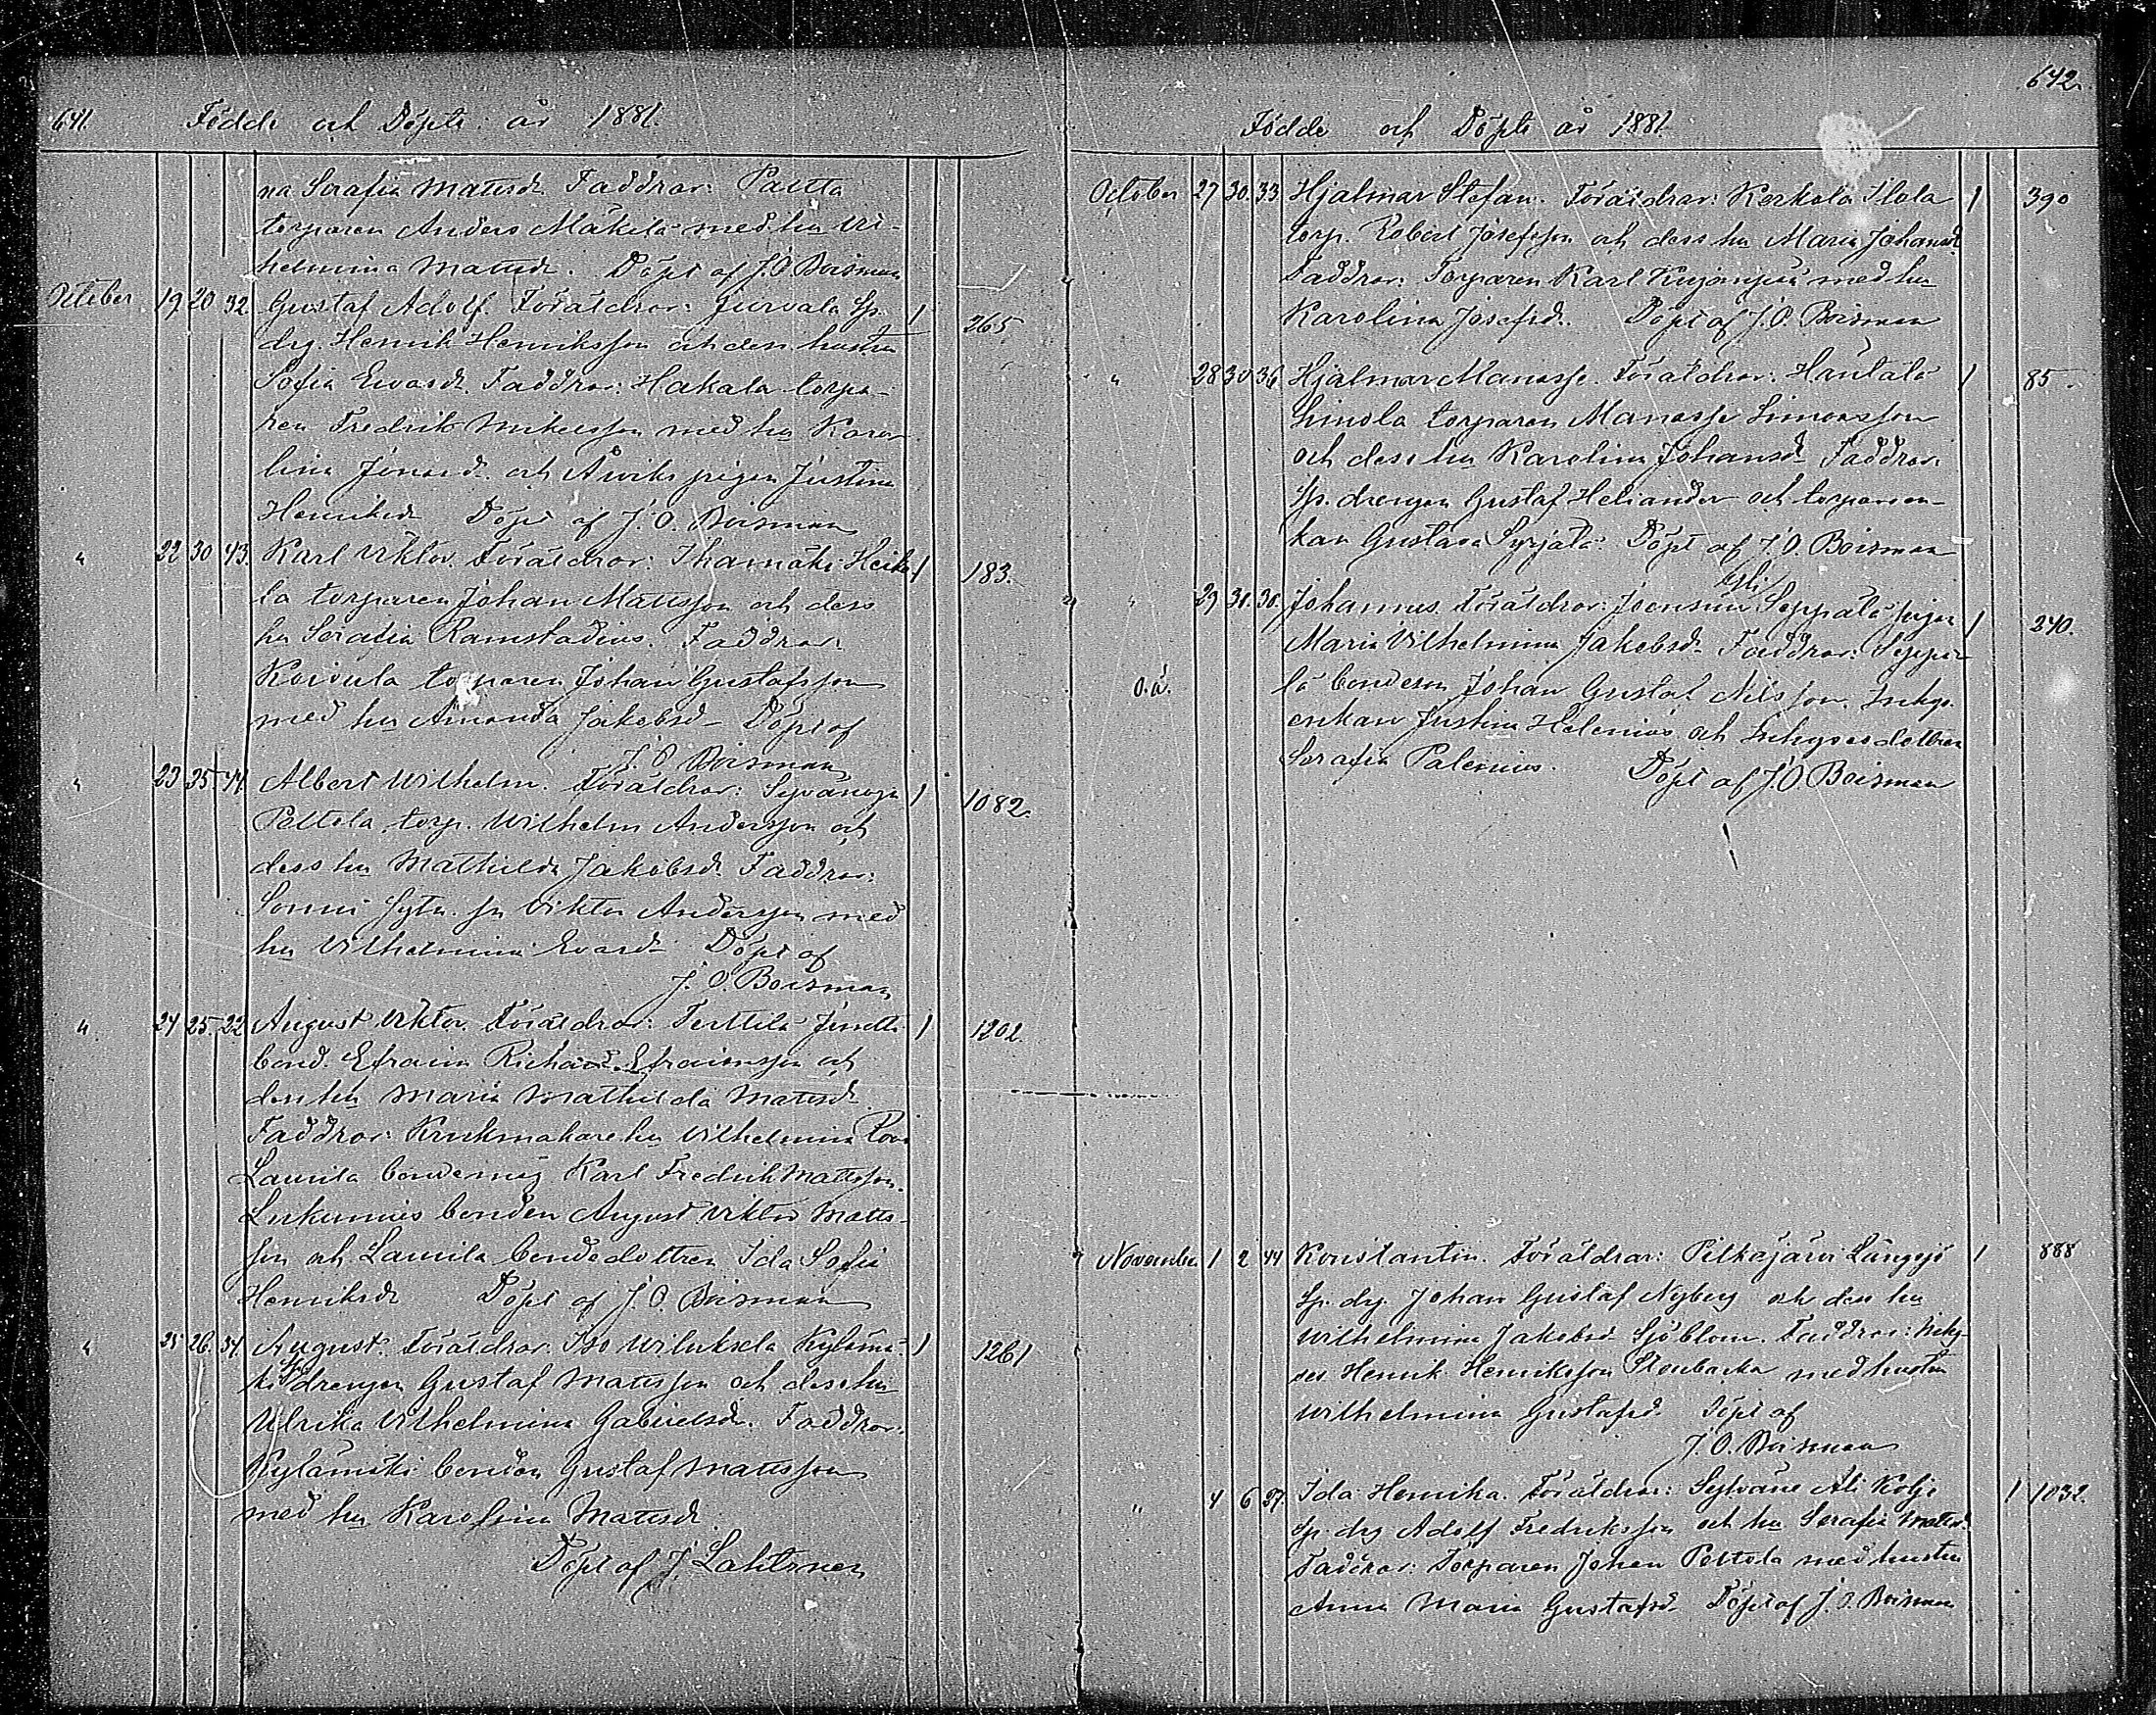 641. Födde och Döpte år 1881.
na Serafia Mattsd. Faddrar: Paltta
torparen Anders Mäkilä med hu Vil-
helmina Mattsd. Döpt af J. O. Boisman
October 19 20 32. Gustaf Adolf. Föräldrar: Jurvala Sp. 1 265.
drg. Henrik Henriksson och dess hustru
Sofia Evasd. Faddrar: Hakala torpa-
ren Fredrik Mikelsson med hu Karo-
lina Jonasd. och Arviks pigan Justina
Henriksd. Döpt af J. O. Boisman
" 22 30 43. Karl Viktor. Föräldrar: Ihamäki Heiki 1 183.
la torparen Johan Mattsson och dess
hu Serafia Ramstadius. Faddrar:
Koivula torparen Johan Gustafsson
med hu Amanda Jakobsd. Döpt af
J. O. Boisman
" 23 25 44 Albert Wilhelm. Föräldrar: Syvänoja 1 1082.
Peltola torp. Wilhelm Andersson och
dess hu Mathilda Jakobsd. Faddrar:
Viktor Andersson med
hu Vilhelmina Evasd. Döpt af
J. O. Boisman
" 24 25. 22 August Viktor. Föräldrar: Terttilä 1 1202.
bond. Efraim Richard Efraimsson och
dess hu Maria Mathilda Mattsd.
Faddrar: Krukmakare hu Vilhelmina
Laurila bondemåg Karl Fredrik Mattsson.
bonden August Viktor Matts-
son och Laurila bondedottren Ida Sofia
Henriksd. Döpt af J. O. Boisman
" 25 26. 34 August. Föräldrar: Iso Wiluksela Kylämä- 1 1261
ki drengen Gustaf Mattsson och dess hu
Ulrika Vilhelmina Gabrielsd. Faddrar:
Kylämäki bonden Gustaf Mattsson
med hu Karolina Mattsd.
Döpt af J. Lahtonen
642.
Födde och Döpte år 1881.
October 27 30. 33. Hjalmar Stefan. Föräldrar: Kerkola Ilola 1 390
torp. Robert Josefsson och dess hu Maria Johansd.
Faddrar: Torparen Karl Kujanpää med hu
Karolina Josefsd. Döpt af J. O. Boisman
" 28 30 36 Hjalmar Manasse. Föräldrar: Hantala 1 85.
Simola torparen Manasse Simonsson
och dess hu Karolina Johansd. Faddrar:
Sp. drengen Gustaf Heliander och torparen-
kan Gustava Syrjälä. Döpt af J. O. Boisman
" 29 31. 30. Johannes. Föräldrar: Joensuu Yli Seppälä pigan 1 240.
Maria Vilhelmina Jakobsd. Faddrar: Seppä-
o.ä. lä bondeson Johan Gustaf Nilsson. Inhys.
enkan Justina Helenius och Inhysesdottren
Serafia Palenius. Döpt af J. O. Boisman
November 1 2 44 Konstantin. Föräldrar: Pitkäjärvi Långsjö 1 888
Sp. drg. Johan Gustaf Nyberg och dess hu
Wilhelmina Jakobsd. Sjöblom. Faddrar: Inhy-
ses Henrik Henriksson Stenbacka med hustru
Wilhelmina Gustafsd. Döpt af
J. O. Boisman
" 4 6 37. Ida Henrika. Föräldrar: Sylvane Ali Kolji 1 1032.
Sp. drg Adolf Fredriksson och hu Serafia Mattsd.
Faddrar: Torparen Johan Peltola med hustru
Anna Maria Gustafsd. Döpt af J. O. Boisman